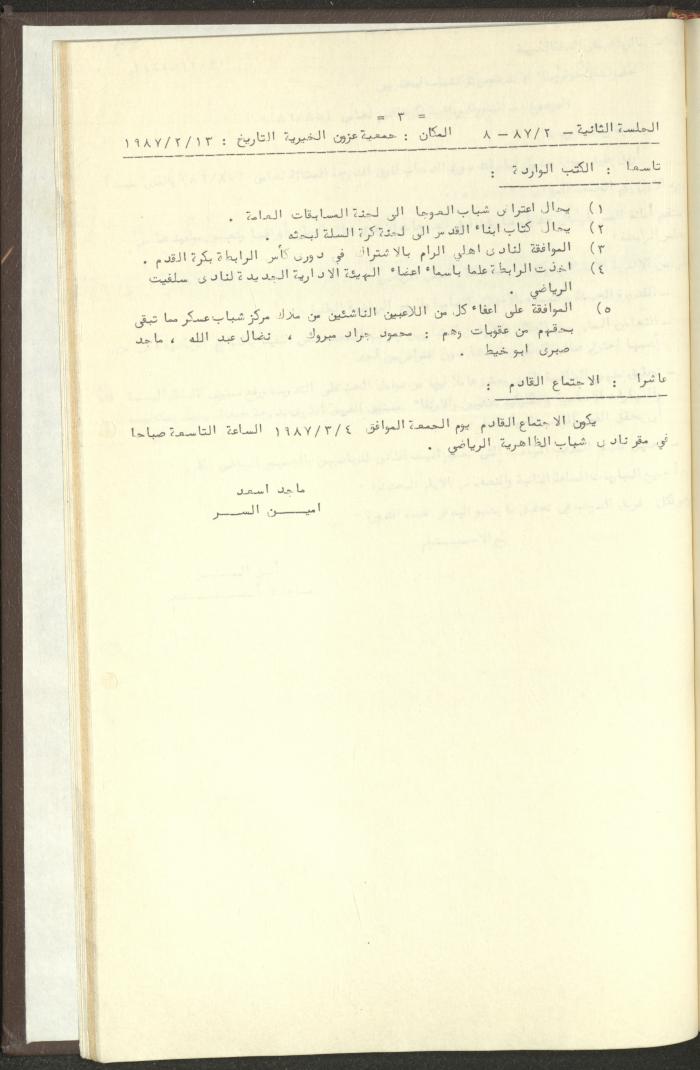 = ٣ =
الجلسة الثانية - ٨٧/٢ - ٨ المكان : جمعية عزون الخيرية التاريخ : ١٩٨٧/٢/١٣
تاسعا : الكتب الواردة :
١) يحال اعتراض شباب العوجا الى لجنة المسابقات العامة .
٢) يحال كتاب ابناء القدس الى لجنة كرة السلة لبحثه .
٣) الموافقة لنادى اهلي الرام بالاشتراك في دورى كأس الرابطة بكرة القدم .
٤) اخذت الرابطة علما باسماء اعضاء الهيئة الادارية الجديدة لنادى سلفيت
الرياضي .
٥) الموافقة على اعفاء كل من اللاعبين الناشئين من ملاك مركز شباب عسكر مما تبقى
بحقهم من عقوبات وهم : محمود جراد مبروك ، نضال عبد الله ، ماجد
صبرى ابو خيط .
عاشرا : الاجتماع القادم :
يكون الاجتماع القادم يوم الجمعة الموافق ١٩٨٧/٣/٤ الساعة التاسعة صباحا
في مقر نادى شباب الظاهرية الرياضي .
ماجد اسعد
اميـــن الســـر